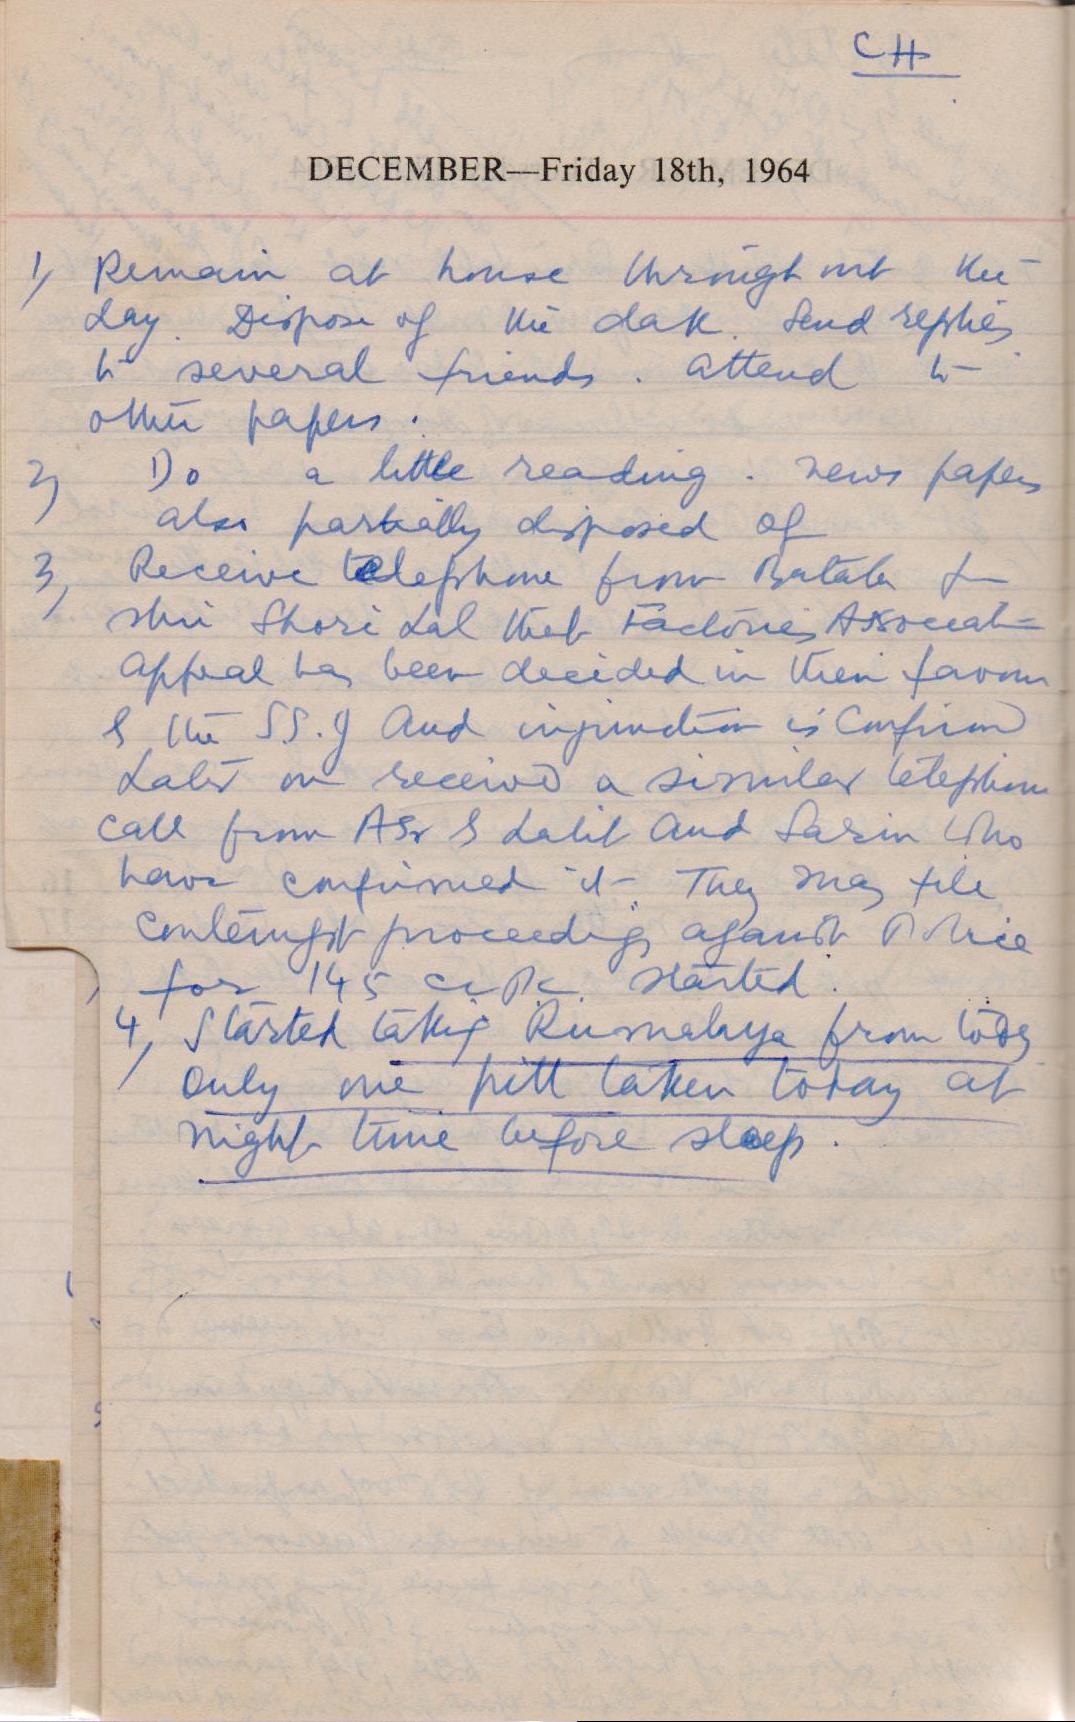 CH
DECEMBER—Friday 18th, 1964
1, Remain at house throughout the
day. Dispose of the dak. Send replies
to several friends. Attend to
other papers.
2, Do a little reading. News papers
also partially disposed of
3, Receive telephone from Batala
Shri Shori Lal that Factories Associat
Appeal has been decided in their favour
& the SS.J and injunction is confirmed
Later on received a similar telephone
call from ASr & Lalit and Sarin who
have confirmed it. They may file
contempt proceedings against Police
for 145 Cr.P.C. started.
4, Started taking Rumalaya from today
only one pill taken today at
night time before sleep.